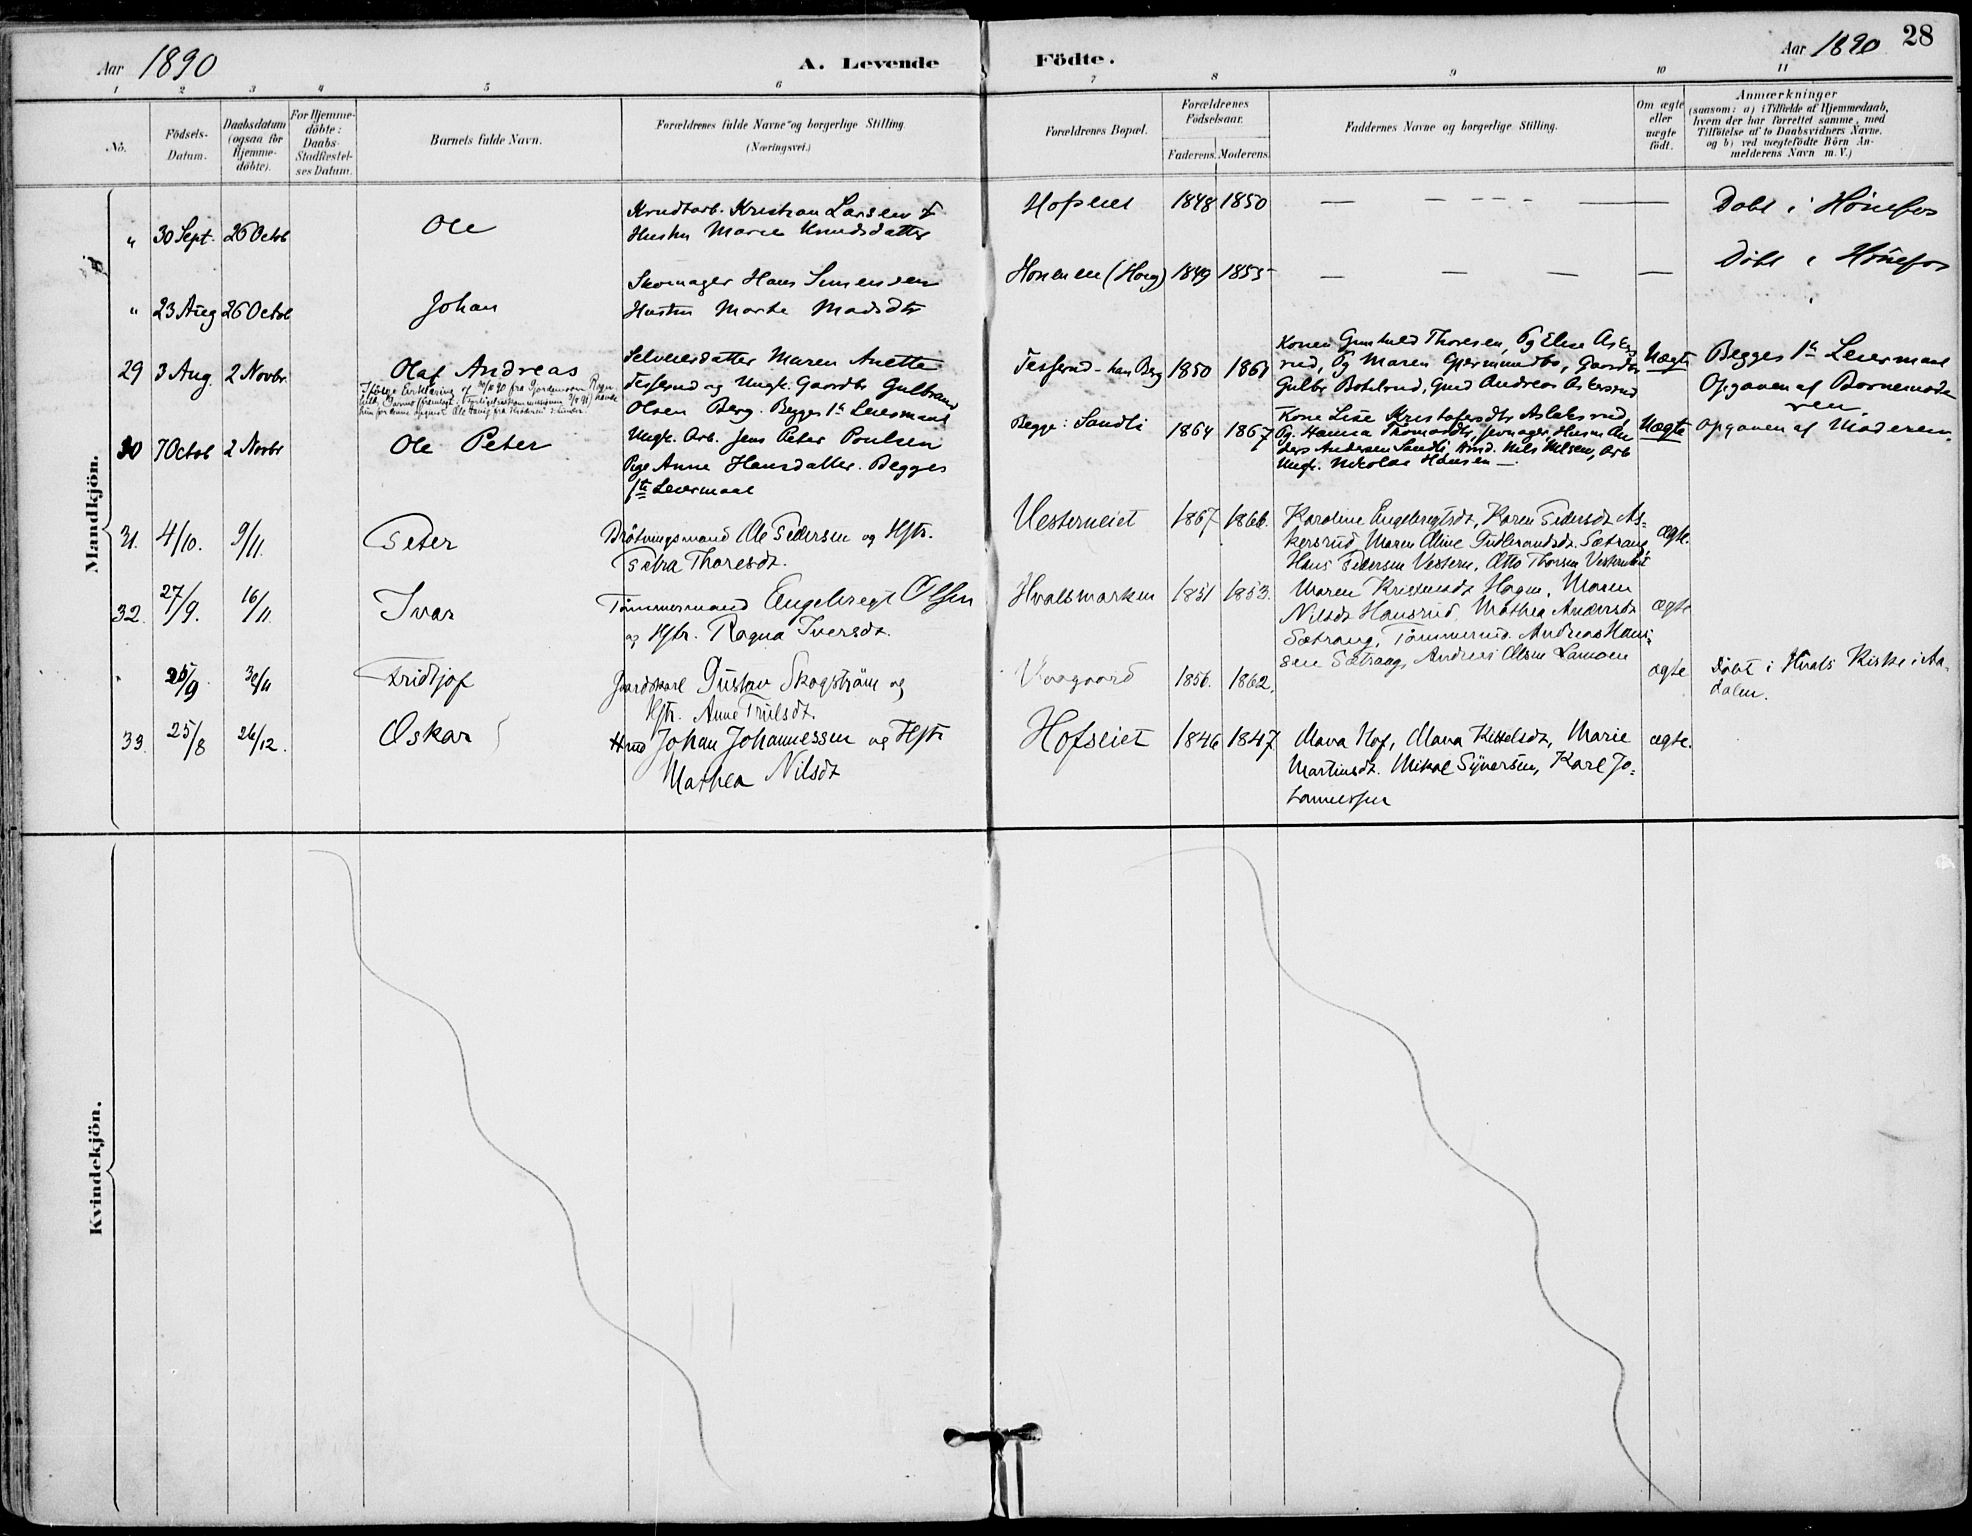 Aar 1890
A. Levende Födte.
Aar 1890
28
1 2 3 4 5 6 7 8 9 10 11
No.
Födsels-Datum.
Daabsdatum (ogsaa for Hjemme-döbte).
For Hjemme-döbte: Daabs-Stadfæstel-ses Datum.
Barnets fulde Navn.
Forældrenes fulde Navne og borgerlige Stilling.
(Næringsvei.)
Forældrenes Bopæl.
Forældrenes Födselsaar.
Faderens. Moderens.
Faddernes Navne og borgerlige Stilling.
Om ægte eller uægte födt.
Anmærkninger
(saasom: a) i Tilfælde af Hjemmedaab,
hvem der har forrettet samme, med
Tilföielse af to Daabsvidners Navne.
og b) ved uægtefödte Börn An-
melderens Navn m. V.)
Mandkjön.
" 30 Sept. 26 Octob Ole
Kristian Larsen &
Hustru Marie Knudsdatter
Hofseiet 1848 1850 — — — — — Döbt i Hönefos
" 23 Aug 26 Octob Johan
Skomager Hans Simensen
Hustru Marte Madsdtr
Honeneie (Hoeg) 1849 1855 — — — — Döbt i Hönefos
29 3 Aug. 2 Novbr. Olaf Andreas
Selveiersdatter Maren Anette
Tesserud og Ungk. Gaardbr Gulbrand
Olsen Berg. Begges 1ste Leiermaal
Tesserud - han Berg 1850 1861
Konen Gunhild Thoresen, Pg Eline Asker
rud, Pg Maren Gjermundbo, Gaardbr
Gulbr Bohlrud, Gmd Andreas Askersrud
Uægte
Begges 1ste Leiermaal
Opgaven af Barnemode
ren
30 7 Octob 2 Novbr Ole Peter
Ungk. Arb. Jens Peter Poulsen
Pige Anne Hansdatter. Begges
1ste Leiermaal
Begge: Sandli 1864 1867
Kone Lise Kristofersdtr Aslaksrud,
Pg. Hanna Thomasdtr,
ders Andersen Sandli, Nils Nilsen, Arb
Ungk. Nikolai Hansen —
Uægte opgaven af Moderen.
31. 4/10. 9/11. Peter
Ole Pedersen og Hstr.
Petra Thoresdt.
Vesterneiet 1867 1866.
Karoline Engebregtsdt, Karen Pedersdt As-
kersrud Maren Oline Gulbrandsdt. Sætrang,
Hans Pedersen Vestern, Otto Thorsen Vesterneiet
ægte.
32. 27/9. 16/11 Ivar
Tömmermand Engebregt Olsen
og Hstr. Ragna Iversdt.
Hvalsmarken 1851 1853.
Maren Kristensdt Hagen, Maren
Nilsdt Hansrud, Mathea Andersdt
Sætrang, Tömmermd. Andreas Han-
sen Sætrang, Andreas Olsen Lamoen
ægte
" 25/9 30/11 Fridtjof
Gaardskarl Gustav Skogström og
Hstr. Anne Trulsdt.
Vaagaard 1856. 1862.
ægte
Döbt i Hvals Kirke i Aa-
dalen.
33. 25/8 26/12. Oskar
Hmd Johan Johannessen og Hstr
Mathea Nilsdt
Hofseiet 1846 1847
Maria Hof, Maria Kittelsdt, Marie
Martinsdt. Mikal Syversen, Karl Jo-
hannessen
ægte.
Kvindekjön.